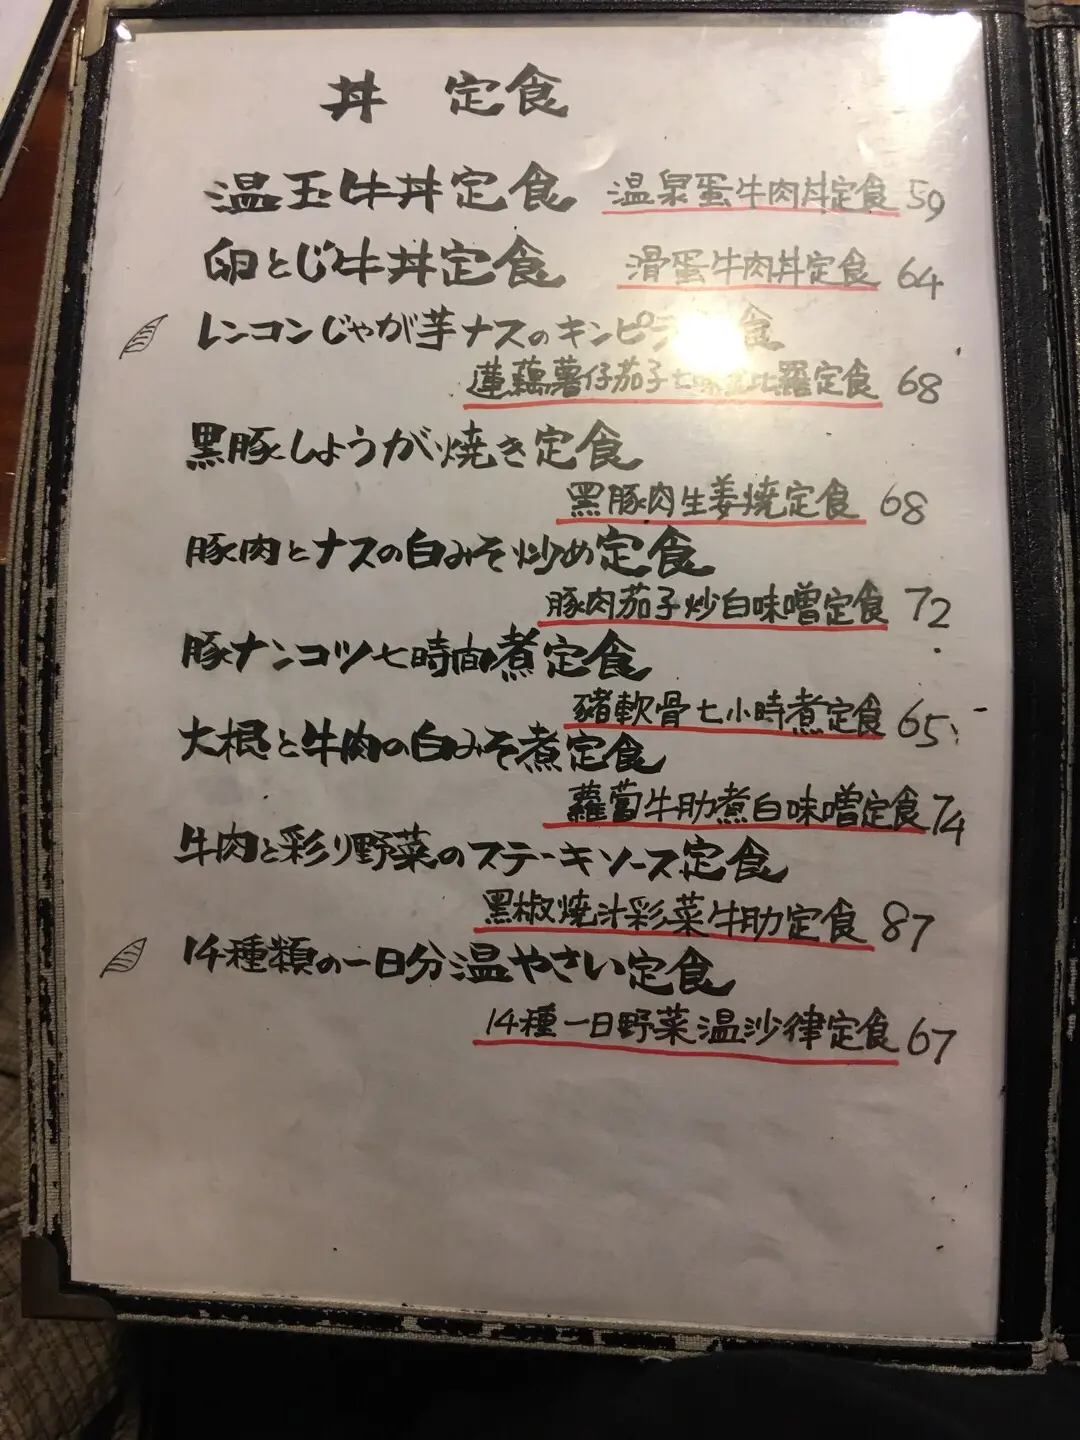 丼 定食
温玉牛丼定食 温泉蛋牛肉丼定食 59
卵とじ牛丼定食 滑蛋牛肉丼定食 64
レンコンじゃが芋ナスのキンピラ 食
蓮藕薯仔茄子七味 比羅定食 68
黒豚しょうが焼き定食
黑豚肉生姜燒定食 68
豚肉とナスの白みそ炒め定食
豚肉茄子炒白味噌定食 72
豚ナンコツ七時間煮定食
豬軟骨七小時煮定食 65
大根と牛肉の白みそ煮定食
蘿蔔牛肋煮白味噌定食 74
牛肉と彩り野菜のステーキソース定食
黑椒燒汁彩菜牛肋定食 87
14種類の一日分温やさい定食
14種一日野菜温沙律定食 67